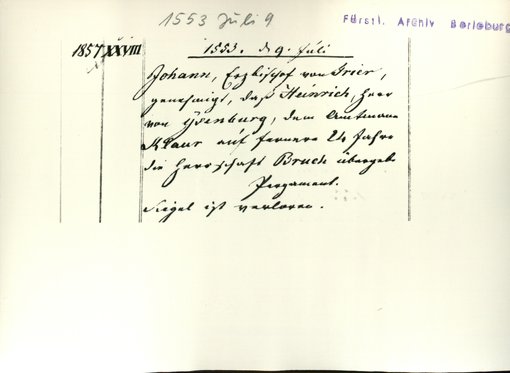 1553 Juli 9
Fürstl. Archiv Berleburg
1857 XXVIII
1553. d 9. Juli
Johann, Erzbischof von Trier,
genehmigt, daß Heinrich, Herr
von Ysenburg, dem Amtmann
Klaur auf fernere 24 Jahre
die Herrschaft Bruch übergebe
Pergament.
Siegel ist verloren.